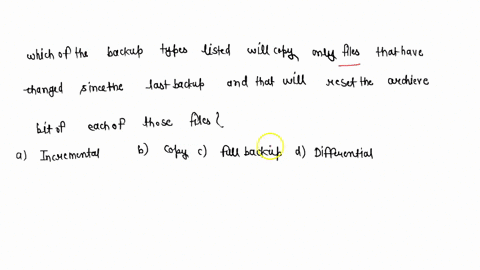 which of the backup types listed will copy only files that have
changed since the last backup and that will reset the archieve
bit of each of those files {
a) Incremental b) Copy c) full backup d) Differential